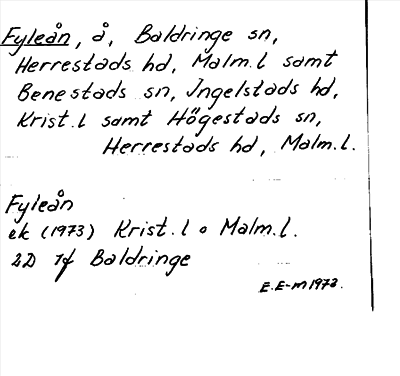 Fyleån, å, Baldringe sn,
Herrestads hd, Malm.l samt
Benestads sn, Ingelstads hd,
Krist.l samt Högestads sn,
Herrestads hd, Malm.l.
Fyleån
ek (1973) Krist.l o Malm.l.
2D 7f Baldringe
E.E-m 1973.